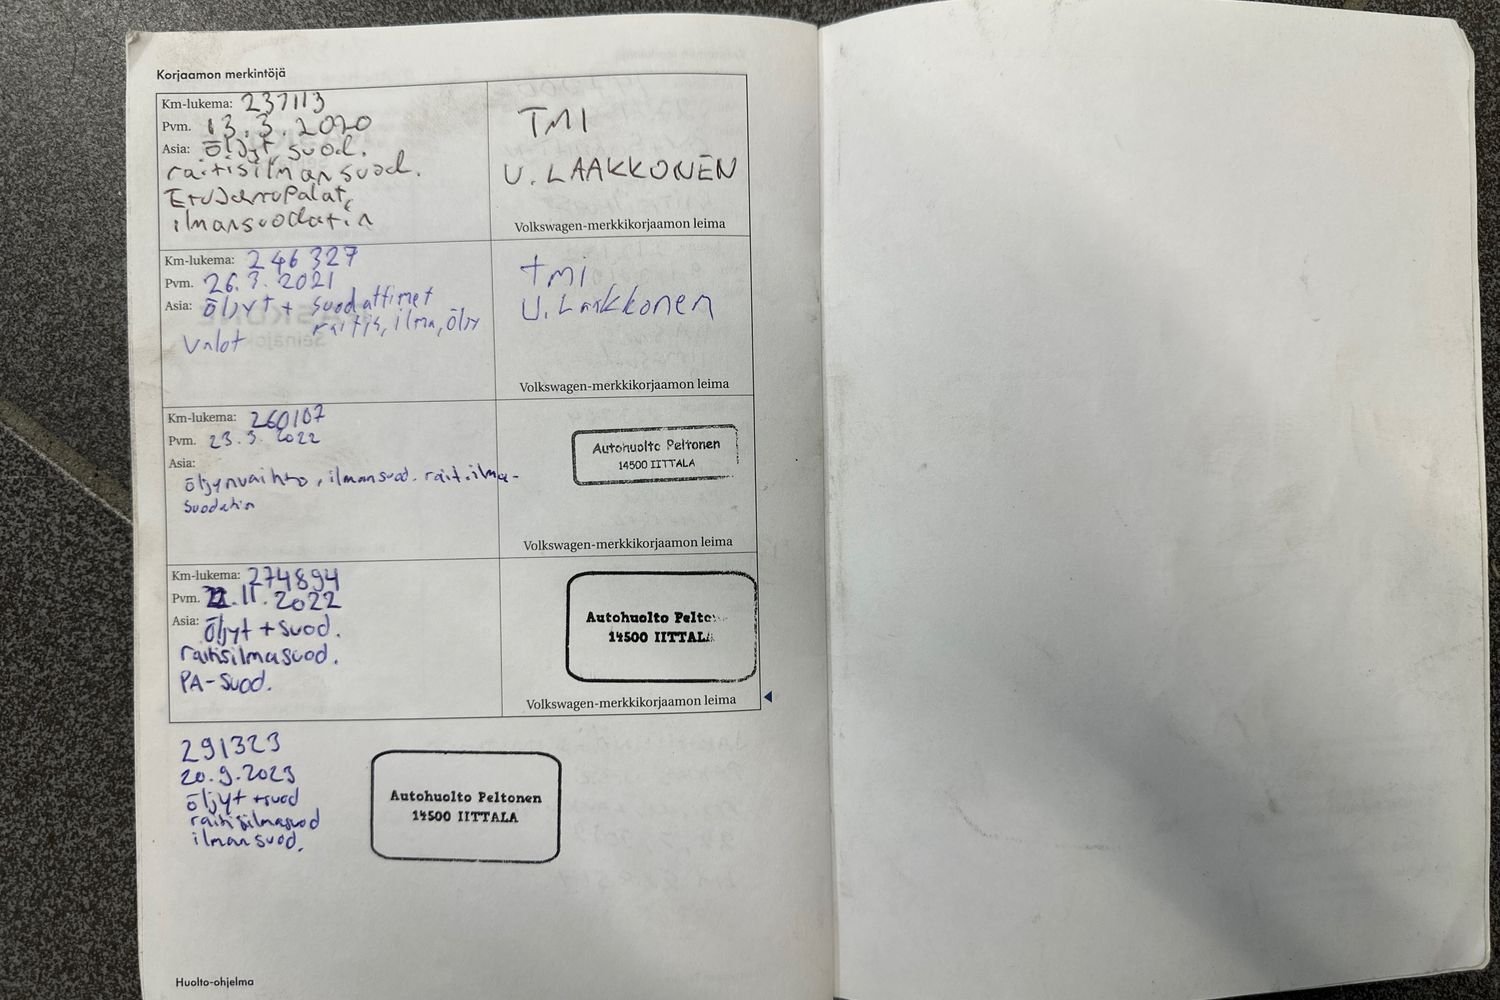 Korjaamon merkintöjä
Km-lukema: 237113
Pvm. 13.3.2020
Asia: öljyt, suod.
raitisilmansuod.
EtuJarruPalat,
ilmansuodatin
TMI
U. LAAKKONEN
Volkswagen-merkkikorjaamon leima
Km-lukema: 246327
Pvm. 26.3.2021
Asia: öljyt + suodattimet
raitis, ilma, öljy
Valot
TMI
U. Laakkonen
Volkswagen-merkkikorjaamon leima
Km-lukema: 260107
Pvm. 23.3.2022
Asia:
öljynvaihto, ilmansuod. rait.ilma-
suodatin
Autohuolto Peltonen
14500 IITTALA
Volkswagen-merkkikorjaamon leima
Km-lukema: 274894
Pvm. 22.11.2022
Asia: öljyt + suod.
raitisilmasuod.
PA-suod.
Autohuolto Pelto
14500 IITTALA
Volkswagen-merkkikorjaamon leima
291323
20.9.2023
öljyt + suod
raitisilmasuod
ilmansuod.
Autohuolto Peltonen
14500 IITTALA
Huolto-ohjelma